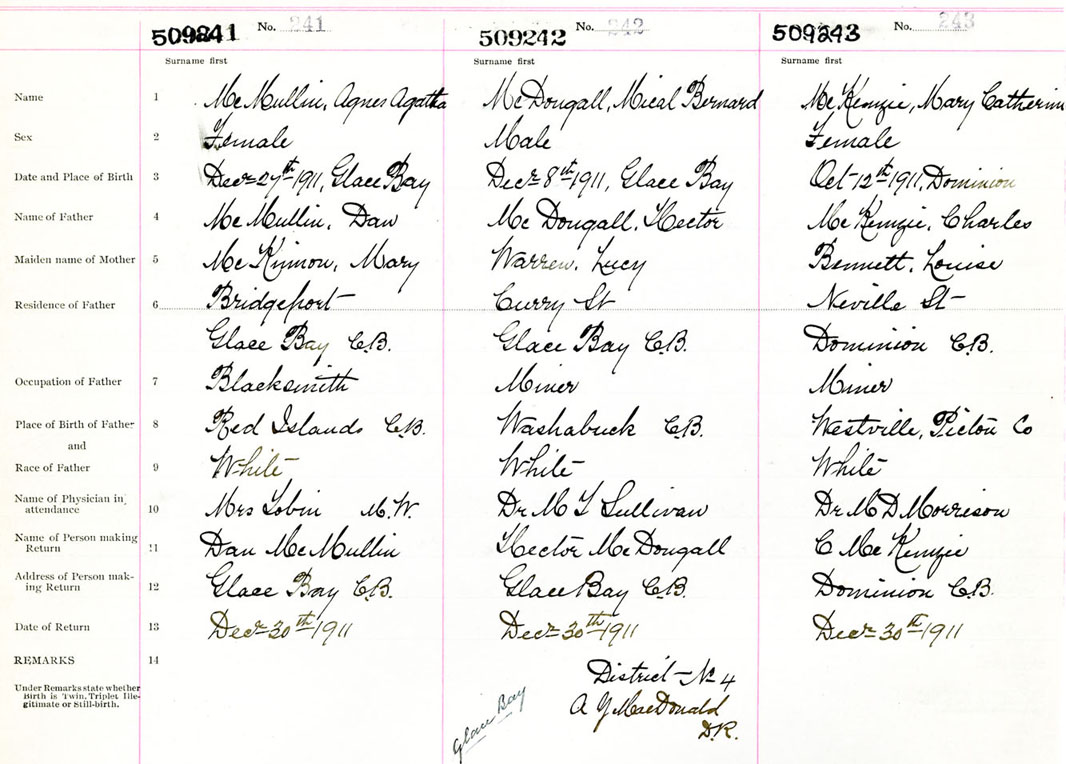 509241 No. 241 509242 No. 242 509243 No. 243
Surname first Surname first Surname first
Name 1 McMullin, Agnes Agatha McDougall, Mical Bernard McKenzie, Mary Catherin
Sex 2 Female Male Female
Date and Place of Birth 3 Decr 27th 1911, Glace Bay Decr 8th 1911, Glace Bay Oct 12th 1911, Dominion
Name of Father 4 McMullin, Dan McDougall, Hector McKenzie, Charles
Maiden name of Mother 5 McKinnon, Mary Warren, Lucy Bennett, Louise
Residence of Father 6 Bridgeport Curry St Neville St
Glace Bay C.B. Glace Bay C.B. Dominion C.B.
Occupation of Father 7 Blacksmith Miner Miner
Place of Birth of Father 8 Red Islands C.B. Washabuck C.B. Westville, Pictou Co
and
Race of Father 9 White White White
Name of Physician in
attendance 10 Mrs Tobin M.W. Dr M T Sullivan Dr M D Morrison
Name of Person making
Return 11 Dan McMullin Hector McDougall C McKenzie
Address of Person mak-
ing Return 12 Glace Bay C.B. Glace Bay C.B. Dominion C.B.
Date of Return 13 Decr 30th 1911 Decr 30th 1911 Decr 30th 1911
REMARKS 14 District No 4
Under Remarks state whether
Birth is Twin, Triplet Ille-
gitimate or Still-birth.
Glace Bay
A Y MacDonald
D.R.